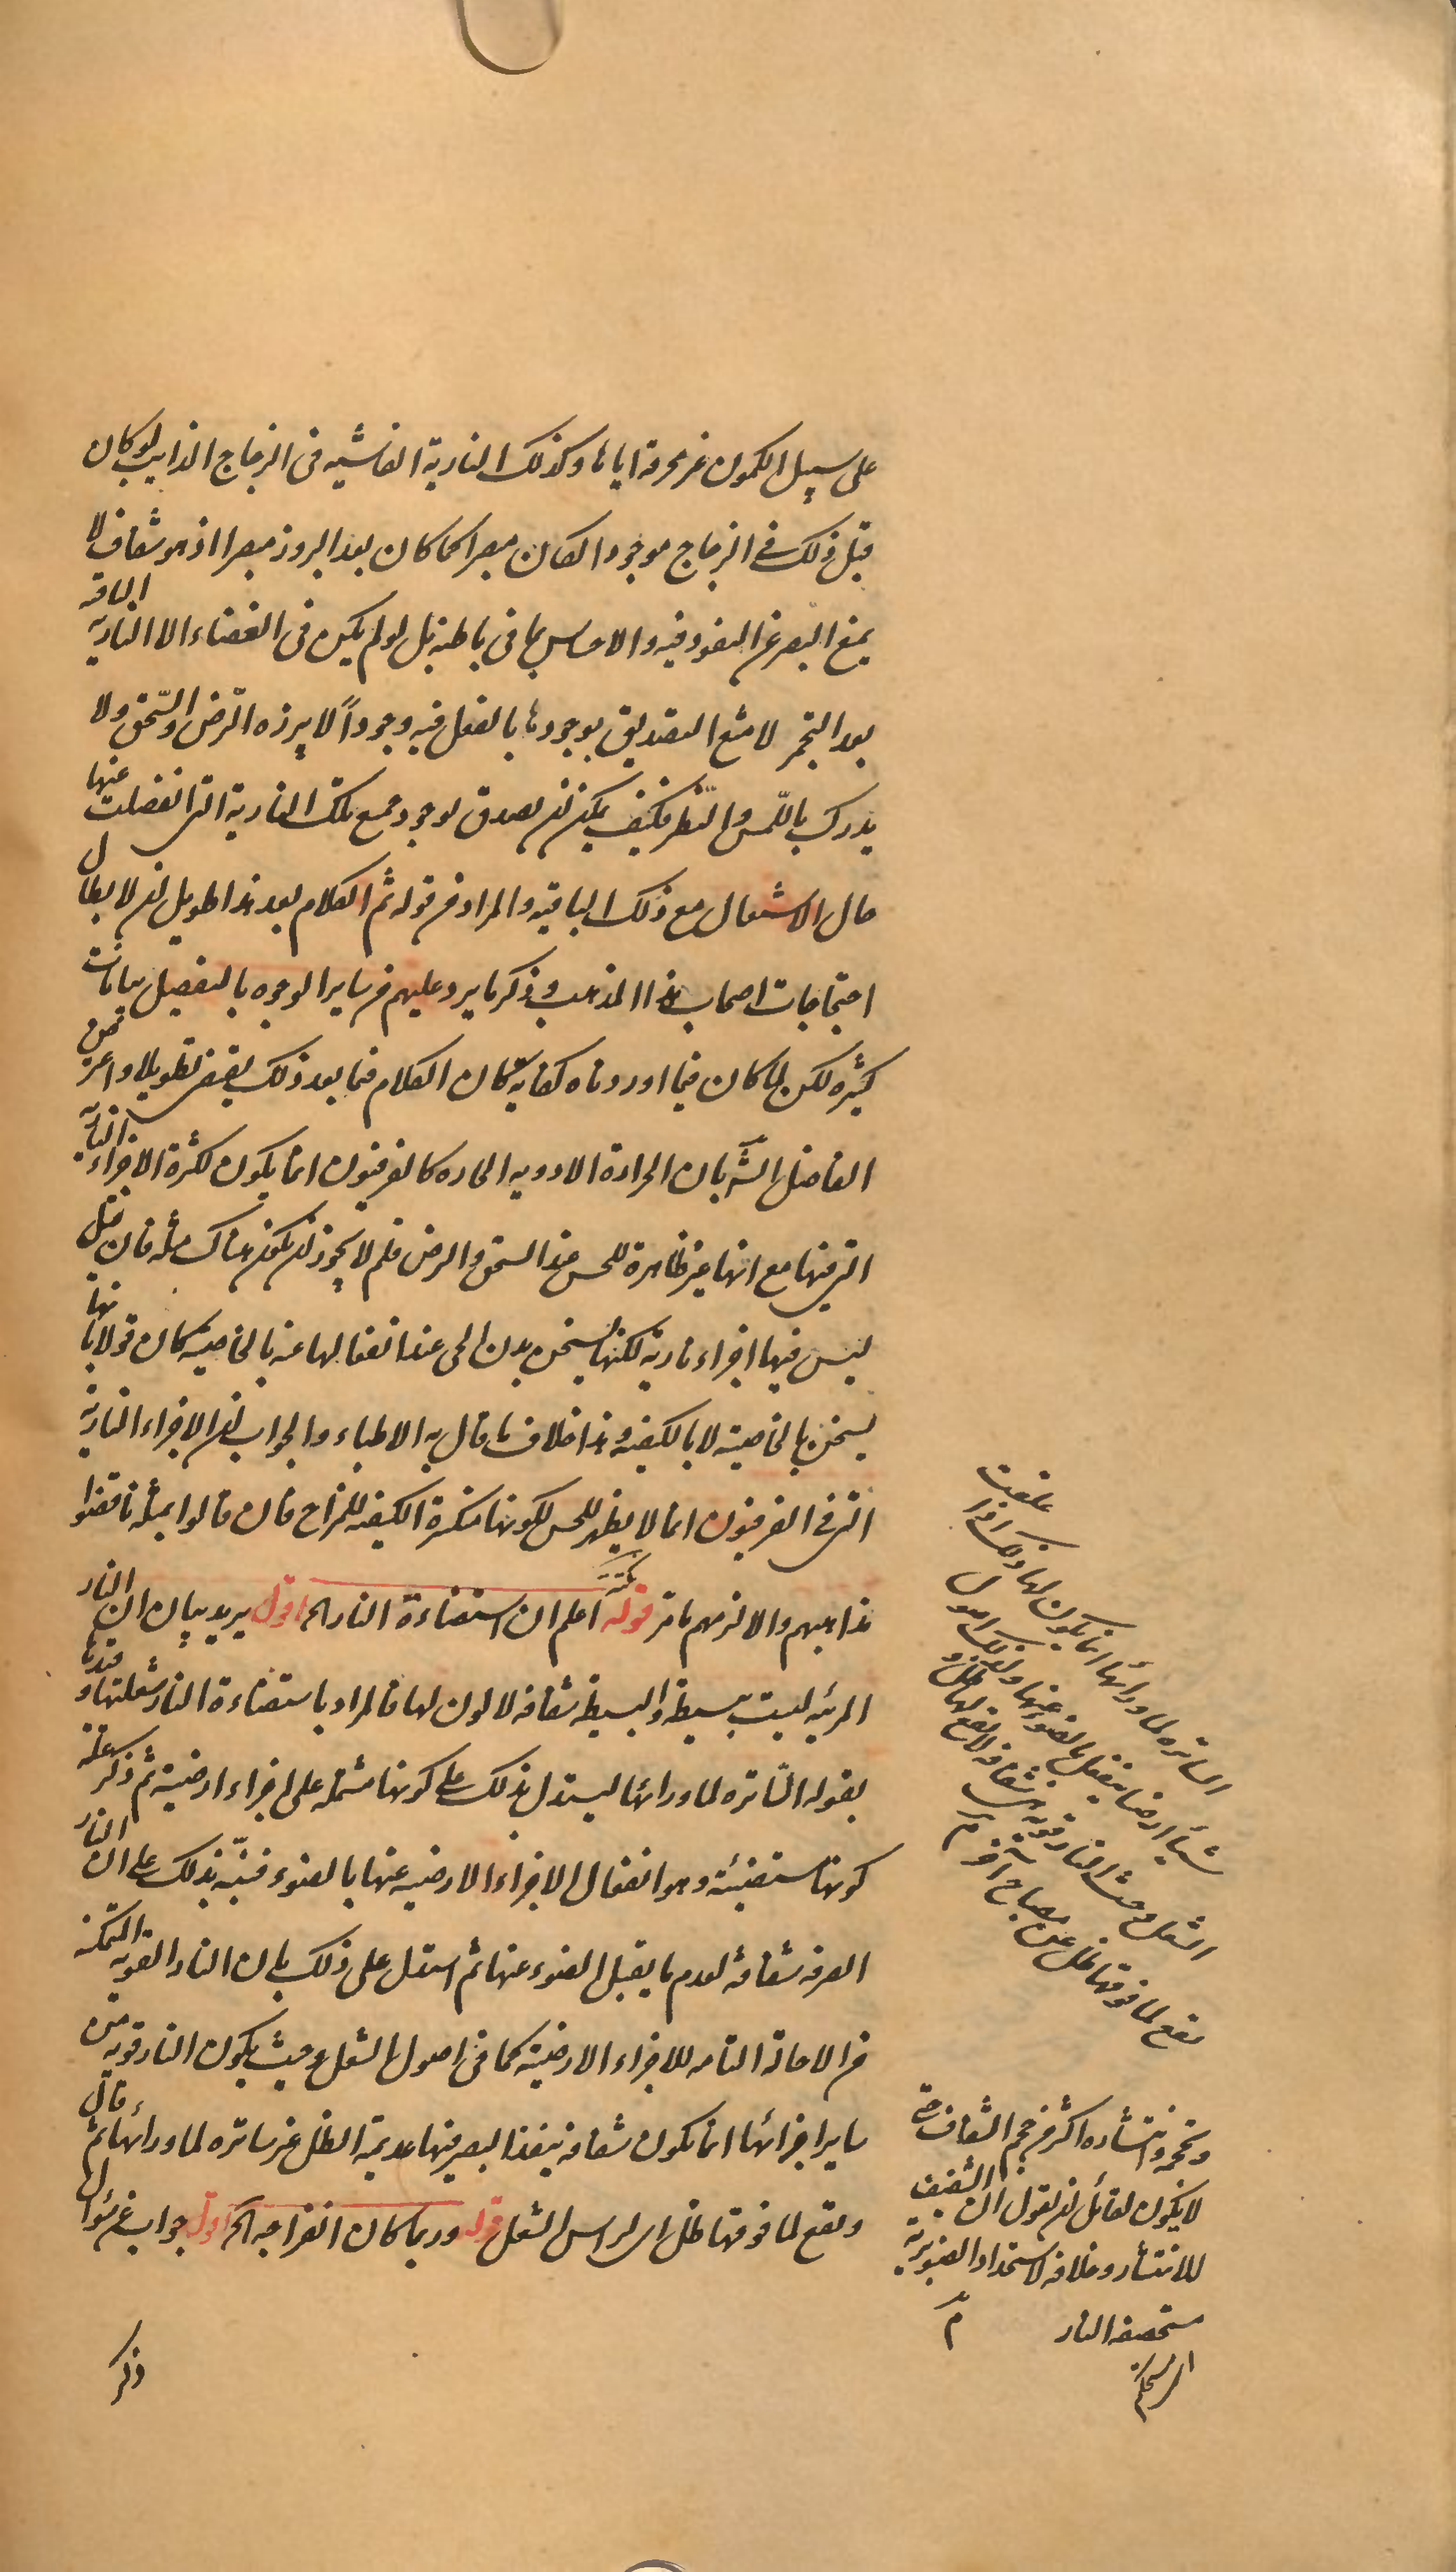 على سبيل الكمون غير محرقة اياها وكذلك النارية الفاشيه فى الزجاج الذايب لو كان
قبل ذلك فى الزجاج موجودا لكان مبصرا كما كان بعد البروز مبصرا اذ هو شفاف لا
يمنع البصر عن النفوذ فيه والاحساس بما فى باطنه بل لو لم يكن فى الغضاء الا النارية الباقية
بعد التجمر لامتنع التصديق بوجودها بالفعل فيه وجوداً لا يبرزه الرّض والسّحق ولا
يدرك باللّمس والنّظر فكيف يمكن ان يصدق بوجود جميع تلك النارية التى انفصلت عنها
حال الاشتعال مع ذلك الباقية والمراد من قوله ثم الكلام بعد هذا طويل ان لابطال
احتجاجات اصحاب هذا المذهب وذكر ما يرد عليهم من ساير الوجوه بالتفصيل بيانات
كثيره لكن لما كان فيما اوردناه كفاية كان الكلام فيما بعد ذلك يقتضى تطويلا واعترض
الفاضل الشّ بان الحرارة الادويه الحاره كالفرفيون انما يكون لكثرة الاجزاء النارية
التى فيها مع انها غير ظاهرة للحس عند السحق والرض فلم لا يجوز ان يكون هناك مثله فان قيل
ليس فيها اجزاء نارية لكنها يسخن بدن الحى عند انفعالها عنه بالخاصية كان قولا بانها
يسخن بالخاصية لا بالكيفية وهذا خلاف ما قال به الاطباء والجواب ان الاجزاء النارية
التى فى الفرفيون انما لا يظهر للحس لكونها منكسرة الكيفية للمزاج فان قالوا بمثله ناقضوا
مذاهبهم والا لزمهم ما مرّ قوله نكتة اعلم ان استضاءة النار الخ اقول يريد بيان ان النار
المرئيه ليست ببسيطة والبسيطة شفافه لا لون لها فالمراد باستضاءة النار شعلتها وقيدها
بقوله السّاتره لما ورائها ليستدل بذلك على كونها مشتمله على اجزاء ارضية ثم ذكر علة
كونها مستضيئة وهو انفعال الاجزاء الارضيه عنها بالضوء فنبّه بذلك على ان النار
الصرفه شفافة لعدم ما يقبل الضوء عنها ثم استدل على ذلك بان النار القويه المتمكنه
من الاحالة التامه للاجزاء الارضية كما فى اصول الشعل وحيث يكون النار قويه من
ساير اجزائها انما يكون شفافة ينفذ البصر فيها عديمة الظل غير ساتره لما ورائها ثم قال
ويقع لما فوقها ظل اى لراس الشعل قوله وربما كان انفراجه الخ اقول جواب عن سؤال
ذكر
الساتره لما ورائها انما يكون لها ذلك اذا علقت
شيأ ارضيا ينفعل بالضوء عنها ولذلك اصول
الشعل وحيث النار قوية هى شفافة لا يقع لها ظل و
يقع لما فوقها ظل عن مصباح آخر مٓ
وحجمه وانتشاره اكثر من حجم الشفاف حتى
لا يكون لقائل ان يقول ان الشفيف
للانتشار وخلافه لاستحداد الصنوبرية
مستحصفة النار مٓ